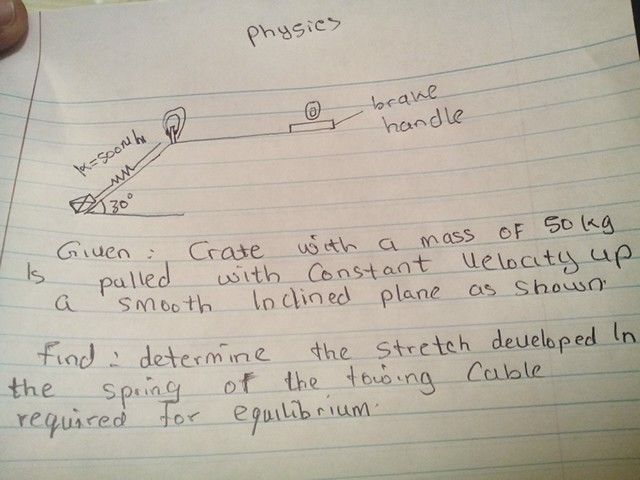 Physics
brake
handle
K=500N/m
30°
Given : Crate with a mass of 50 kg
Is pulled with Constant Velocity up
a smooth Inclined plane as shown.
find : determine the stretch developed In
the spring of the towing Cable
required for equilibrium.